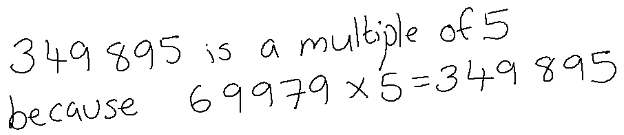 349 895 is a multiple of 5
because 69979 × 5 = 349 895